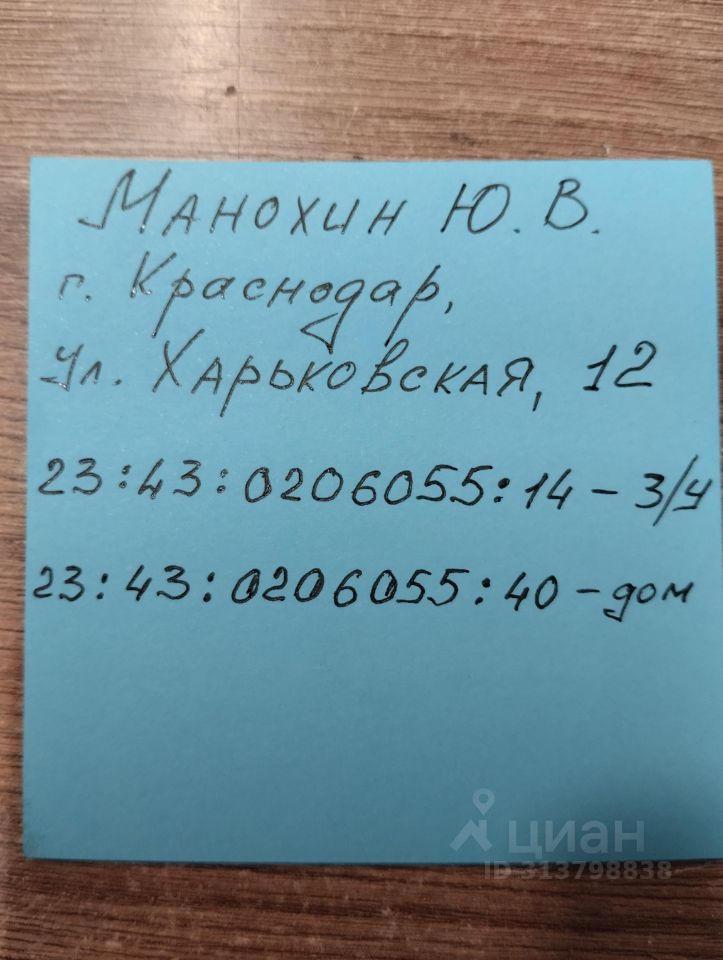 Манохин Ю. В.
г. Краснодар,
ул. Харьковская, 12
23:43:0206055:14 - З/У
23:43:0206055:40 - дом
циан
ID 313798838